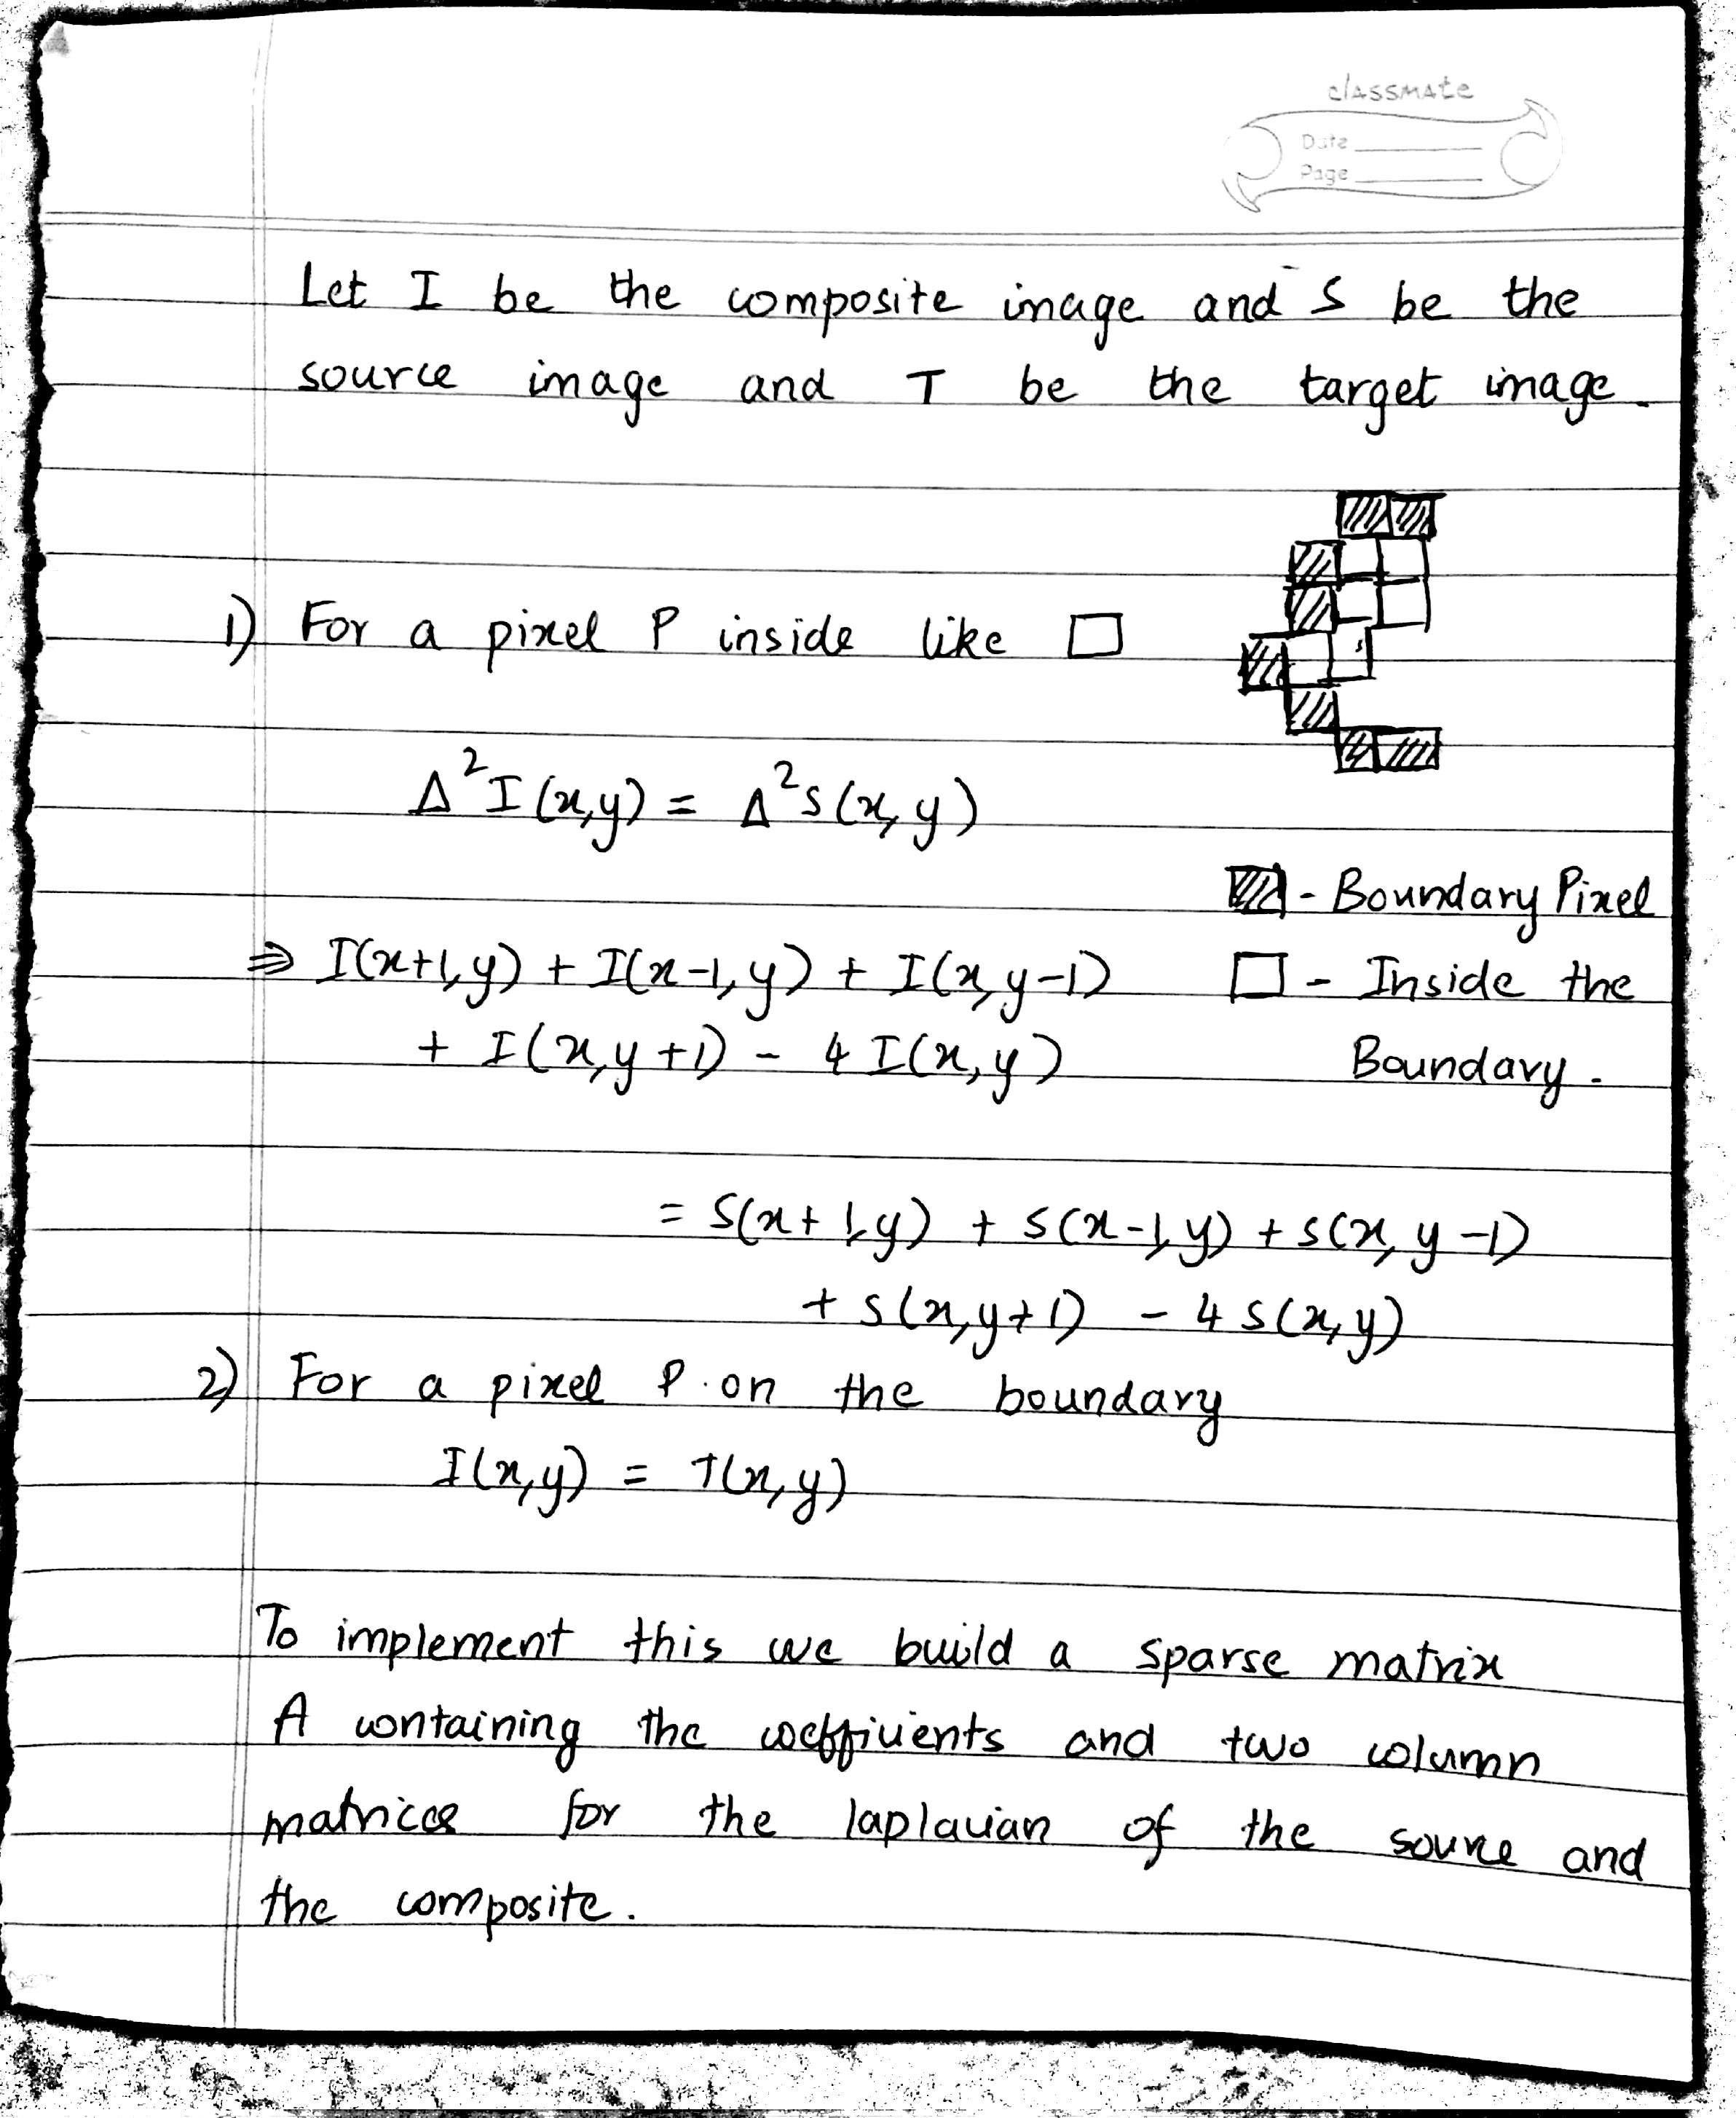 classmate
Date
Page
Let I be the composite image and S be the
source image and T be the target image.
1) For a pixel P inside like □
Δ²I(x,y) = Δ²S(x,y)
- Boundary Pixel
⇒ I(x+1,y) + I(x-1,y) + I(x,y-1)
□ - Inside the
+ I(x,y+1) - 4I(x,y)
Boundary.
= S(x+1,y) + S(x-1,y) + S(x,y-1)
+ S(x,y+1) - 4S(x,y)
2) For a pixel P on the boundary
I(x,y) = T(x,y)
To implement this we build a sparse matrix
A containing the coefficients and two column
matrices for the laplacian of the source and
the composite.